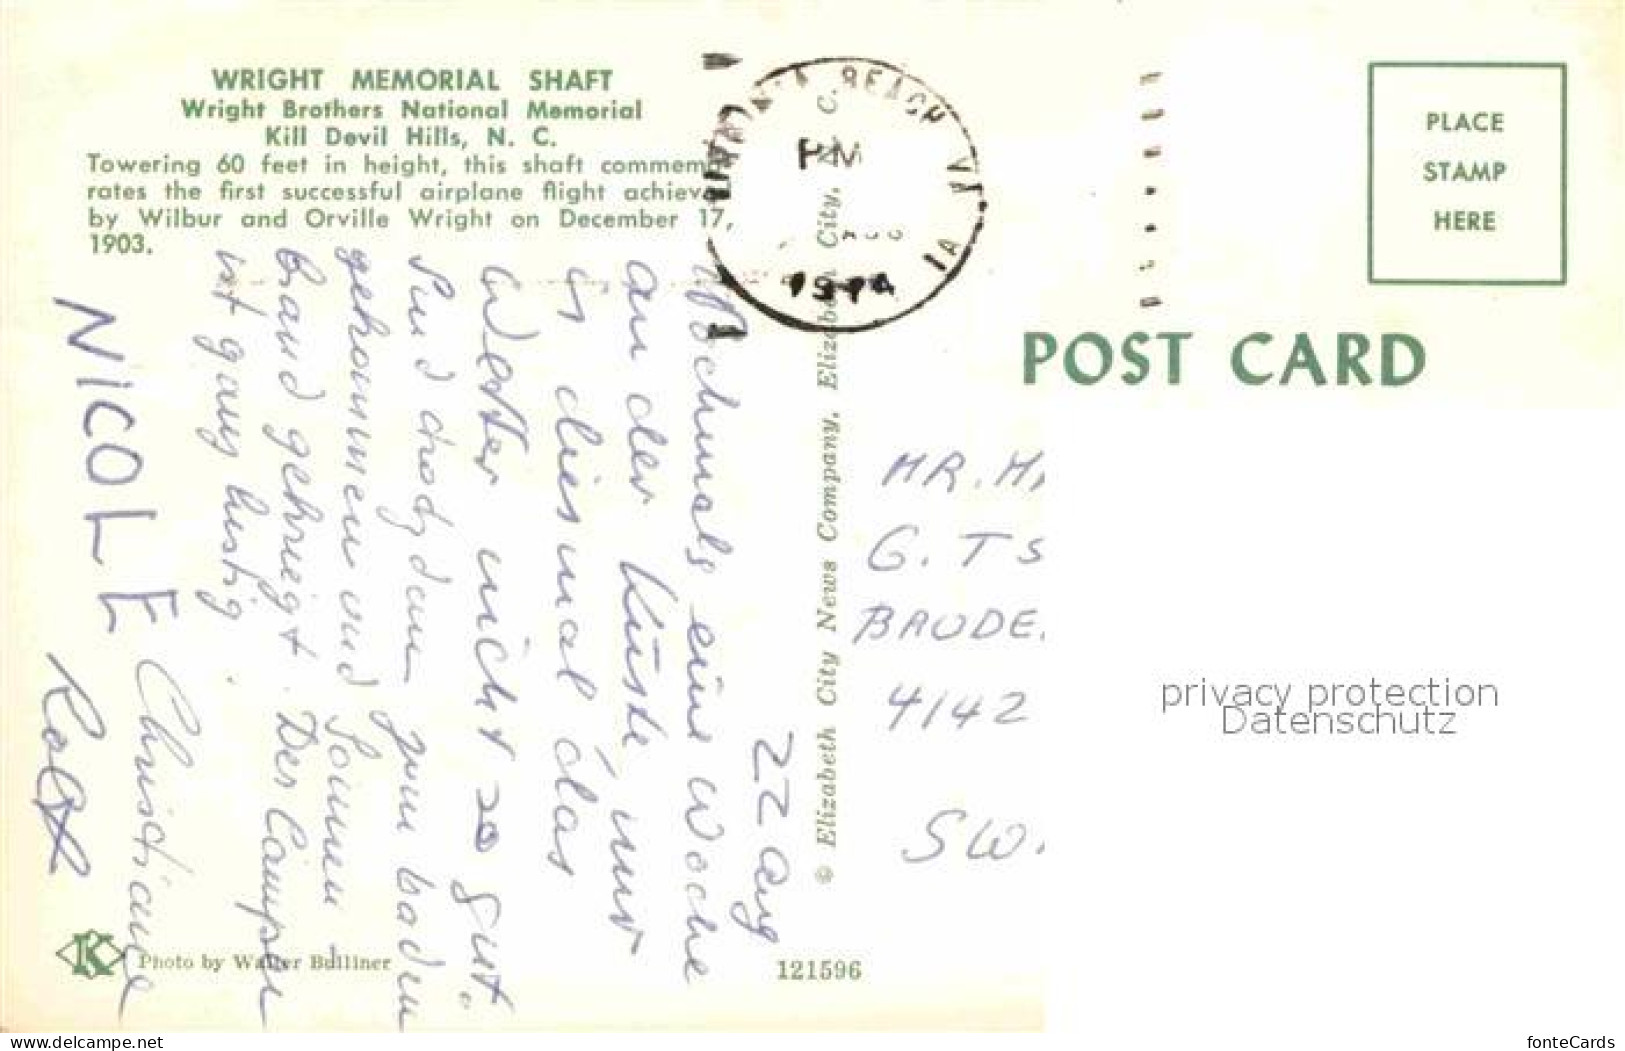 WRIGHT MEMORIAL SHAFT
Wright Brothers National Memorial
Kill Devil Hills, N. C.
Towering 60 feet in height, this shaft commem
rates the first successful airplane flight achieve
by Wilbur and Orville Wright on December 17,
1903.
22 Aug
Nochmals eine Woche
an der Küste nur
ist diesmal das
Wetter nicht so gut.
Sind trotzdem zum baden
gekommen und Sonnen-
brand gekriegt. Der Camper
ist ganz lustig.
Christiane
NICOLE
Rolf
Photo by Walter Belliner
121596
© Elizabeth City News Company, Elizabeth City, N. C.
VIRGINIA BEACH VA
PM
AUG
1974
PLACE
STAMP
HERE
POST CARD
MR. H
G. TS
BAUDE
4142
SW
privacy protection
Datenschutz
www.delcampe.net
fonteCards